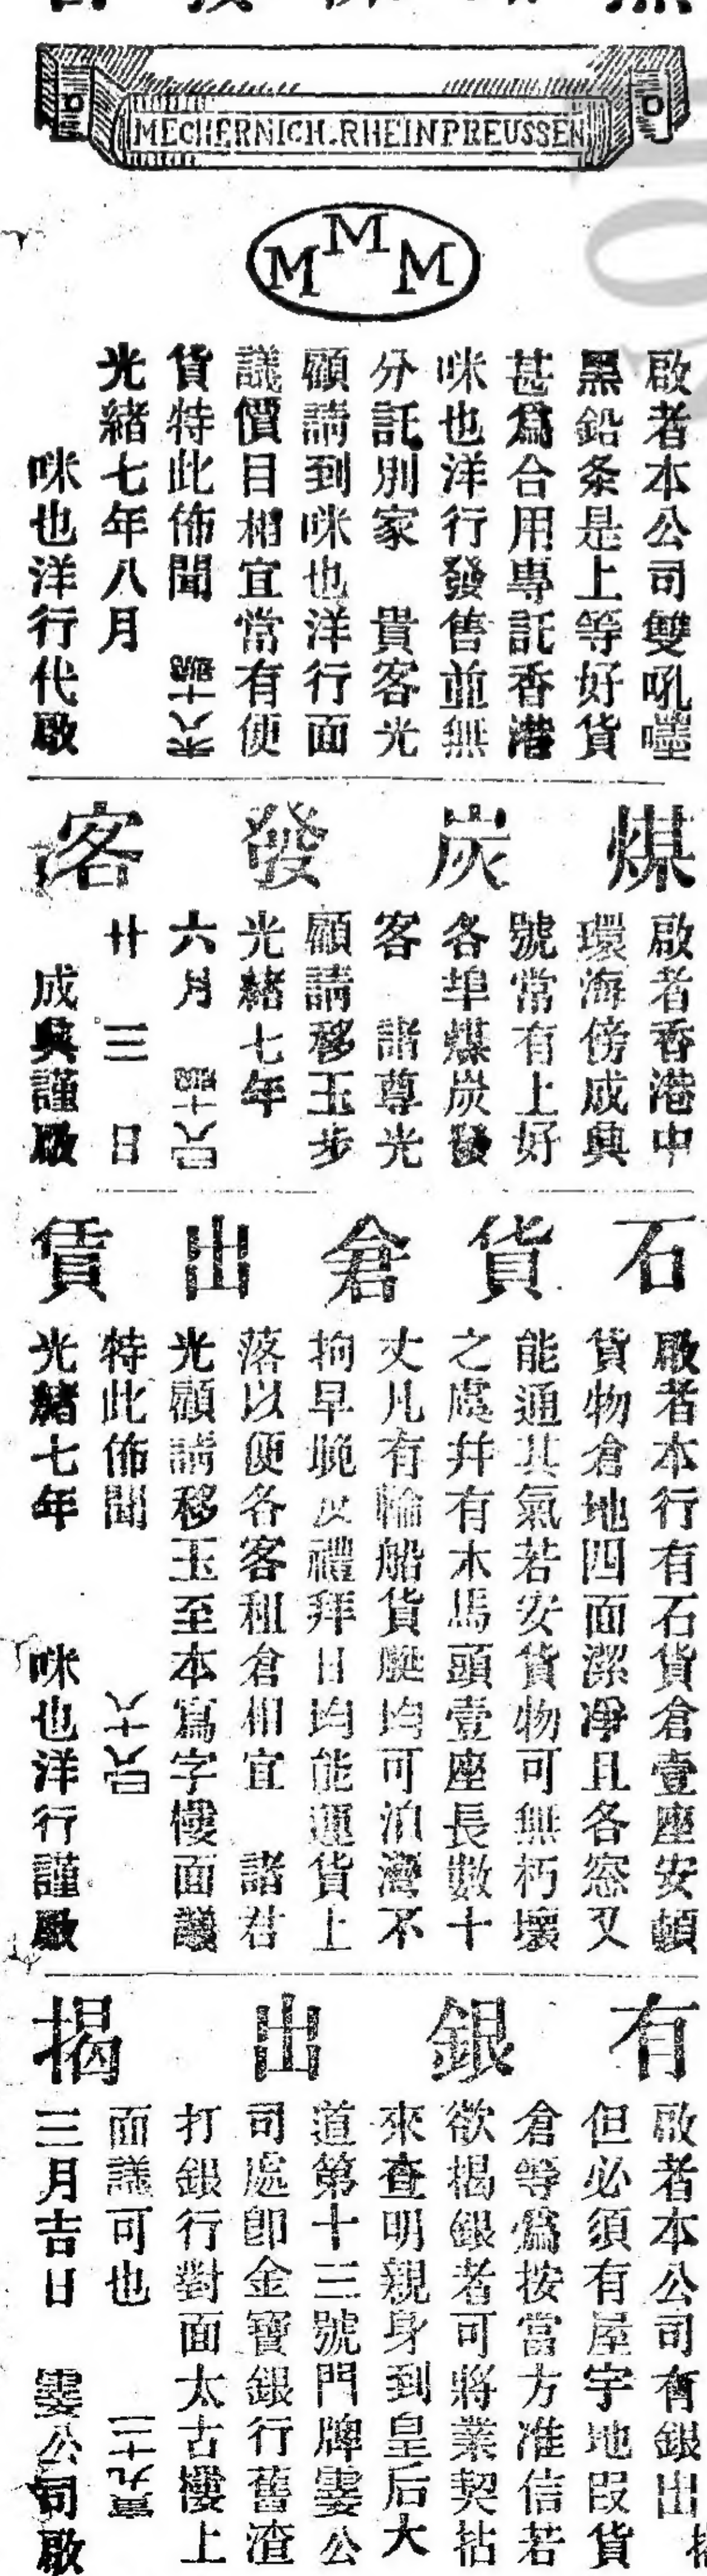 MECHERNICH.RHEINPREUSSEN
M M M
啟者本公司雙吼嚜
黑鉛条是上等好貨
甚爲合用專託香港
咪也洋行發售並無
分託別家　貴客光
顧請到咪也洋行面
議價目相宜常有便
貨特此佈聞
光緒七年八月
咪也洋行代啟
煤炭發客
啟者香港中
環海傍成興
號常有上好
各埠煤炭發
客　諸尊光
顧請移玉步
光緒七年
六月
廿三日
成興謹啟
石貨倉出賃
啟者本行有石貨倉壹座安頓
貨物倉地四面潔凈且各窓又
能通其氣若安貨物可無朽壞
之處并有木馬頭壹座長數十
丈凡有輪船貨艇均可泊灣不
拘早晚及禮拜日均能運貨上
落以便各客租倉相宜　諸君
光顧請移玉至本寫字樓面議
特此佈聞
光緒七年　咪也洋行謹啟
有銀出揭
啟者本公司有銀出揭
但必須有屋宇地段貨
倉等爲按當方准信若
欲揭銀者可將業契拈
來查明親身到皇后大
道第十三號門牌霎公
司處即金寶銀行舊渣
打銀行對面太古樓上
面議可也
三月吉日　霎公司啟